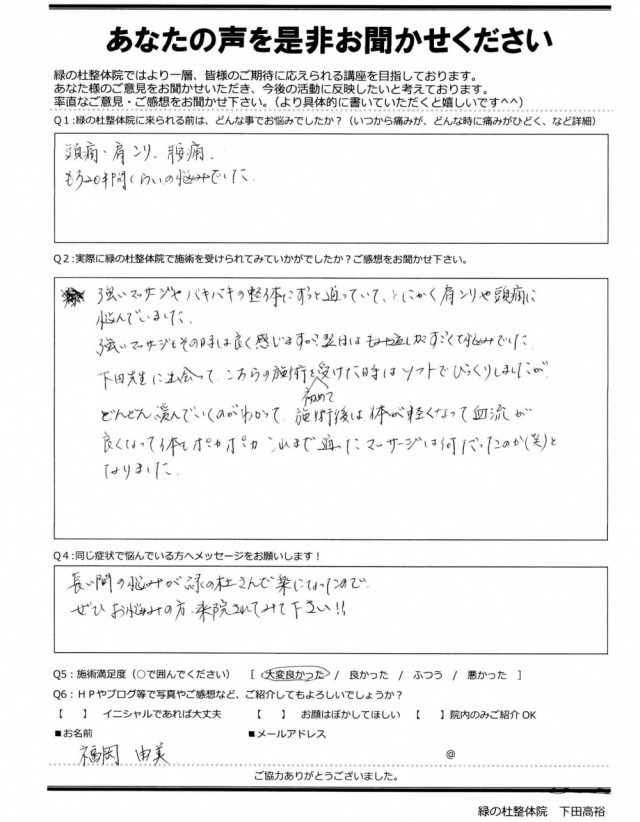 あなたの声を是非お聞かせください
緑の杜整体院ではより一層、皆様のご期待に応えられる講座を目指しております。
あなた様のご意見をお聞かせいただき、今後の活動に反映したいと考えております。
率直なご意見・ご感想をお聞かせ下さい。（より具体的に書いていただくと嬉しいです^^）
Q1:緑の杜整体院に来られる前は、どんな事でお悩みでしたか？（いつから痛みが、どんな時に痛みがひどく、など詳細）
頭痛・肩コリ、腰痛、
もう20年間くらいの悩みでした
Q2:実際に緑の杜整体院で施術を受けられてみていかがでしたか？ご感想をお聞かせ下さい。
強いマッサージやバキバキの整体にずっと通っていて、とにかく肩コリや頭痛に
悩んでいました。
強いマッサージとその時は良く感じますが、翌日は すごくて悩みでした。
下田先生に出会って、こちらの施術を受けた時はソフトでびっくりしましたが
初めて
どんどん緩んでいくのがわかって、施術後は体が軽くなって血流が
良くなって体もポカポカ これまで通ったマッサージは何だったのか(笑)と
なりました。
Q4:同じ症状で悩んでいる方へメッセージをお願いします！
長い間の悩みが緑の杜さんで楽になったので
ぜひお悩みの方、来院されてみて下さい!!
Q5：施術満足度（○で囲んでください）　[　大変良かった　/　良かった　/　ふつう　/　悪かった　]
Q6：ＨＰやブログ等で写真やご感想など、ご紹介してもよろしいでしょうか？
【　】　イニシャルであれば大丈夫　【　】　お顔はぼかしてほしい　【　】院内のみご紹介 OK
■お名前　■メールアドレス
福岡 由美　@
ご協力ありがとうございました。
緑の杜整体院　下田高裕